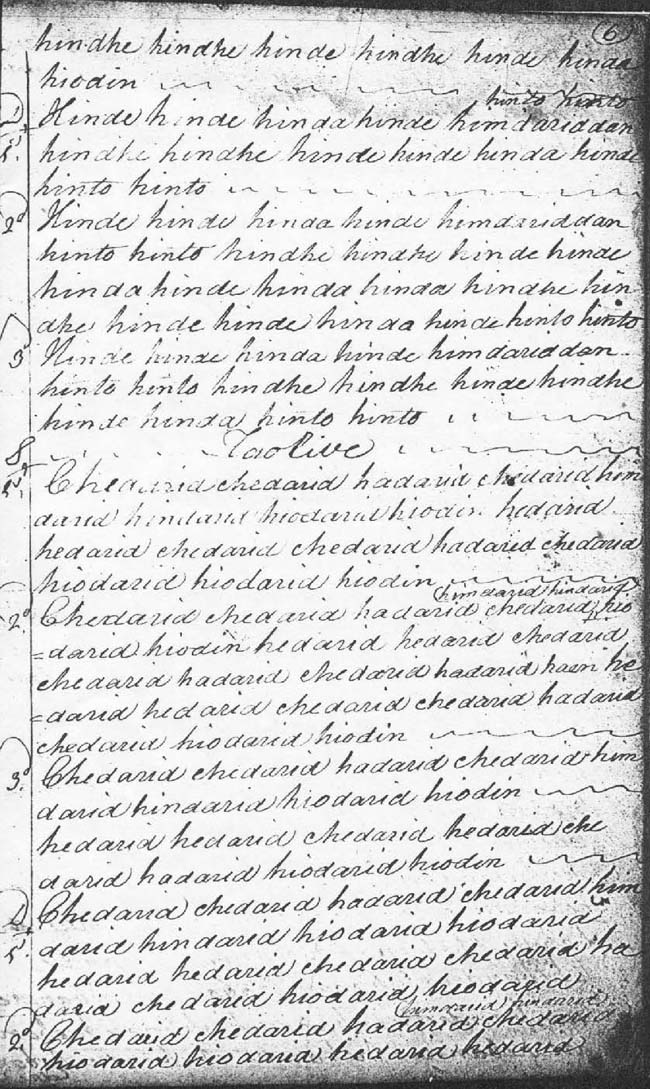 6
hindhe hindhe hinde hindhe hinde hinda
hiodin
hinto hinto
1 Hinde hinde hinda hinde himdariddan
hindhe hindhe hinde hinde hinda hinde
hinto hinto
2d Hinde hinde hinda hinde himdariddan
hinto hinto hindhe hindhe hinde hinde
hinda hinde hinda hinda hindhe hin
dhe hinde hinde hinda hinde hinto hinto
3d Hinde hinde hinda hinde himdariddan
hinto hinto hindhe hindhe hinde hindhe
hinde hinda hinto hinto
Taolive
Chedarid chedarid hadarid chedarid him
darid hindarid hiodarid hiodin hedarid
hedarid chedarid chedarid hadarid chedarid
hiodarid hiodarid hiodin
himdarid hindarid
2d Chedarid chedarid hadarid chedarid hio
=darid hiodin hedarid hedarid chedarid
chedarid hadarid chedarid hadarid haen he
=darid hedarid chedarid chedarid hadarid
chedarid hiodarid hiodin
3d Chedarid chedarid hadarid chedarid him
darid hindarid hiodarid hiodin
hedarid hedarid chedarid hedarid che
darid hadarid hiodarid hiodin
Chedarid chedarid hadarid chedarid him
darid hindarid hiodarid hiodarid
hedarid hedarid chedarid chedarid ha
darid chedarid hiodarid hiodarid
himdarid hindarid
2d Chedarid chedarid hadarid chedarid
hiodarid hiodarid hedarid hedarid